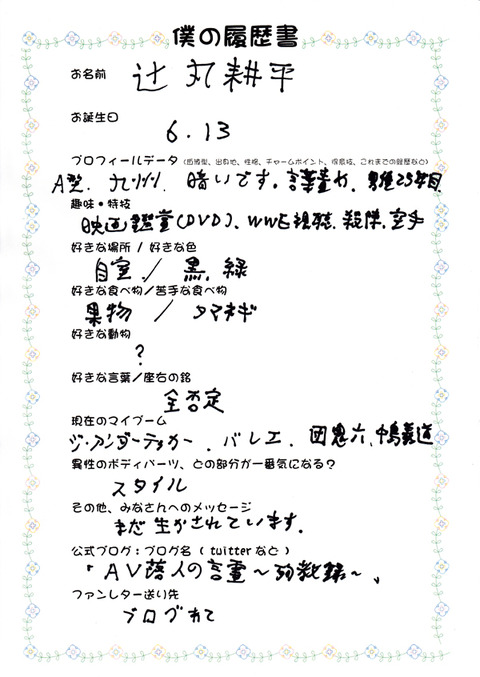 僕の履歴書
お名前 辻丸耕平
お誕生日
6.13
プロフィールデータ(血液型、出身地、性格、チャームポイント、得意技、これまでの経歴など)
A型. 九州. 暗いです. 言葉責め. 男優25年目.
趣味・特技
映画鑑賞(DVD)、WWE視聴. 殺陣. 空手
好きな場所 / 好きな色
自室. / 黒. 緑
好きな食べ物/苦手な食べ物
果物 / タマネギ
好きな動物
?
好きな言葉/座右の銘
全否定
現在のマイブーム
ジ・アンダーテイカー. バレエ. 団鬼六、中島義道
異性のボディパーツ、どの部分が一番気になる?
スタイル
その他、みなさんへのメッセージ
まだ生かされています.
公式ブログ:ブログ名 ( twitterなど )
「AV落人の言霊〜殉教録〜」
ファンレター送り先
ブログあて